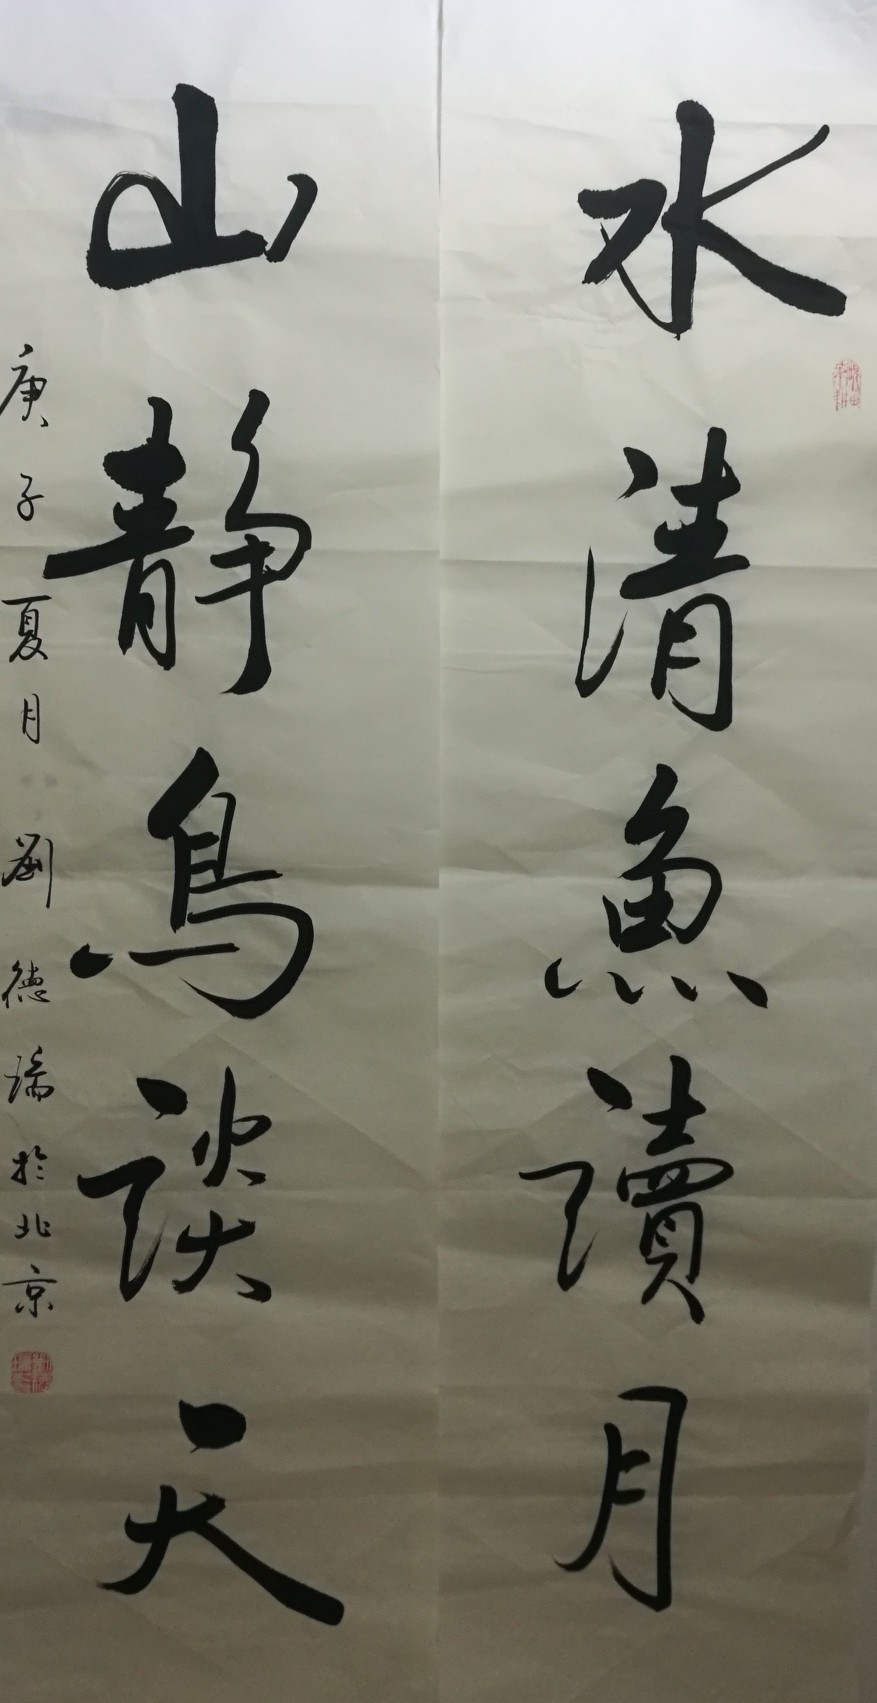 水清魚讀月
山静鳥談天
庚子夏月劉德瑞於北京